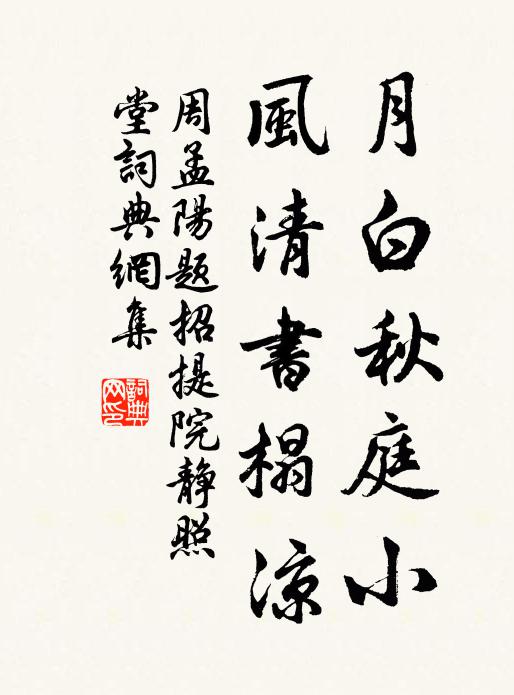 月白秋庭小
風清書榻涼
周孟陽題招提院靜照
堂詞典網集
詞典
网印